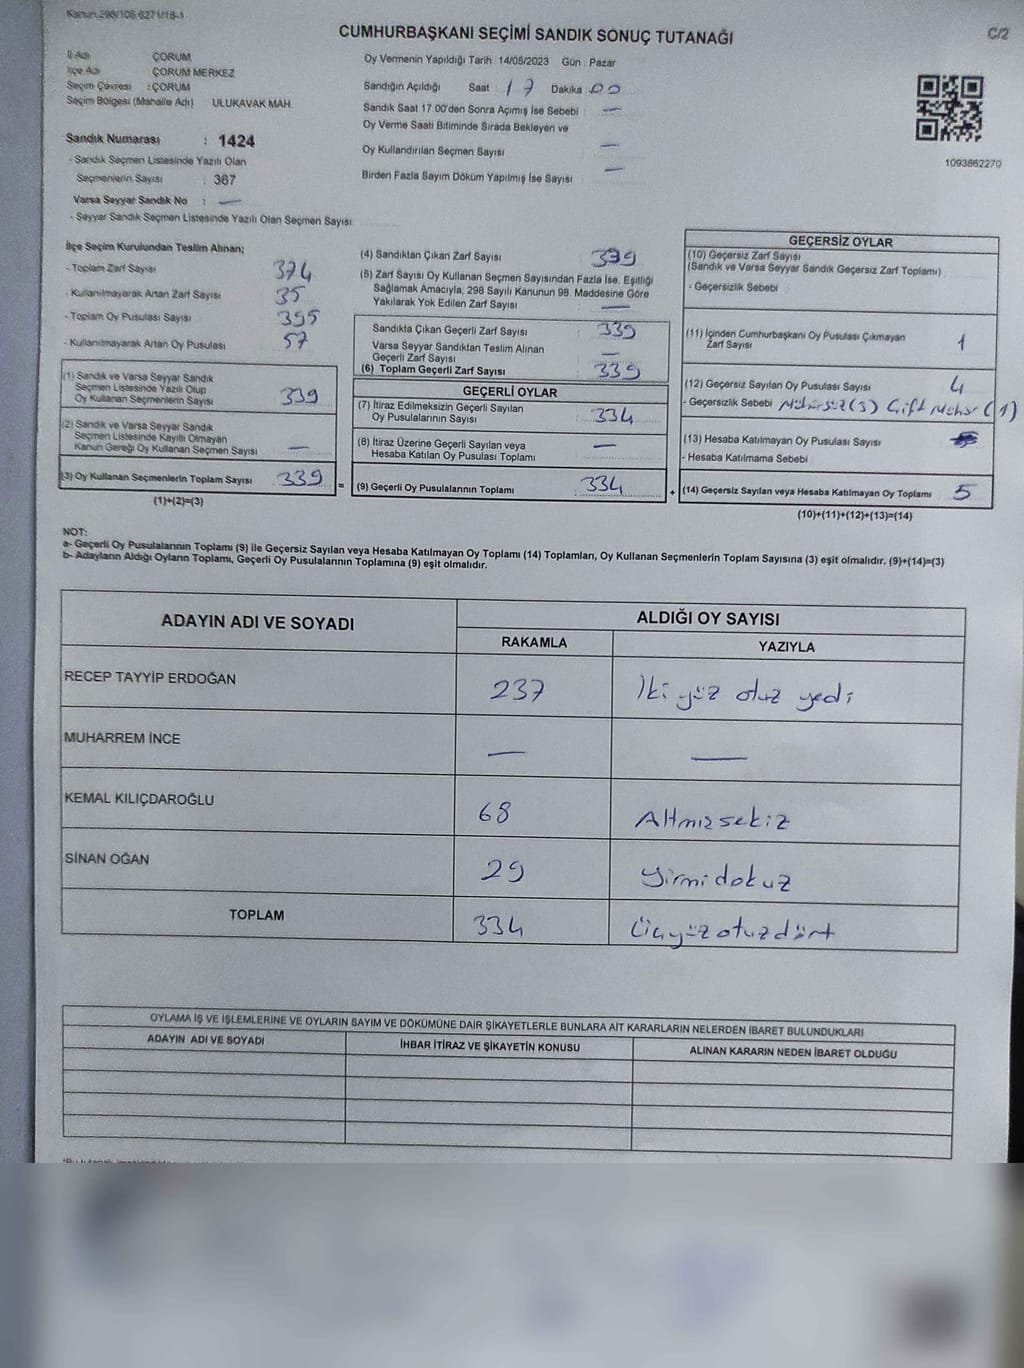 Kanun:298/105-6271/18-1
CUMHURBAŞKANI SEÇİMİ SANDIK SONUÇ TUTANAĞI
C/2
İl Adı : ÇORUM
İlçe Adı : ÇORUM MERKEZ
Seçim Çevresi : ÇORUM
Seçim Bölgesi (Mahalle Adı) ULUKAVAK MAH.
Oy Vermenin Yapıldığı Tarih 14/05/2023 Gün : Pazar
Sandığın Açıldığı Saat 17 Dakika : 00
Sandık Saat 17.00'den Sonra Açılmış İse Sebebi : —
Oy Verme Saati Bitiminde Sırada Bekleyen ve
Oy Kullandırılan Seçmen Sayısı : —
Birden Fazla Sayım Döküm Yapılmış İse Sayısı : —
1093862270
Sandık Numarası : 1424
- Sandık Seçmen Listesinde Yazılı Olan
Seçmenlerin Sayısı : 367
Varsa Seyyar Sandık No : —
- Seyyar Sandık Seçmen Listesinde Yazılı Olan Seçmen Sayısı
İlçe Seçim Kurulundan Teslim Alınan;
- Toplam Zarf Sayısı : 374
- Kullanılmayarak Artan Zarf Sayısı : 35
- Toplam Oy Pusulası Sayısı : 395
- Kullanılmayarak Artan Oy Pusulası : 57
(1) Sandık ve Varsa Seyyar Sandık
Seçmen Listesinde Yazılı Olup
Oy Kullanan Seçmenlerin Sayısı : 339
(2) Sandık ve Varsa Seyyar Sandık
Seçmen Listesinde Kayıtlı Olmayan
Kanun Gereği Oy Kullanan Seçmen Sayısı : —
(3) Oy Kullanan Seçmenlerin Toplam Sayısı : 339
(1)+(2)=(3)
=
(4) Sandıktan Çıkan Zarf Sayısı : 339
(5) Zarf Sayısı Oy Kullanan Seçmen Sayısından Fazla İse, Eşitliği
Sağlamak Amacıyla, 298 Sayılı Kanunun 98. Maddesine Göre
Yakılarak Yok Edilen Zarf Sayısı : —
Sandıkta Çıkan Geçerli Zarf Sayısı : 339
Varsa Seyyar Sandıktan Teslim Alınan
Geçerli Zarf Sayısı : —
(6) Toplam Geçerli Zarf Sayısı : 339
GEÇERLİ OYLAR
(7) İtiraz Edilmeksizin Geçerli Sayılan
Oy Pusulalarının Sayısı : 334
(8) İtiraz Üzerine Geçerli Sayılan veya
Hesaba Katılan Oy Pusulası Toplamı : —
(9) Geçerli Oy Pusulalarının Toplamı : 334
+
GEÇERSİZ OYLAR
(10) Geçersiz Zarf Sayısı
(Sandık ve Varsa Seyyar Sandık Geçersiz Zarf Toplamı)
- Geçersizlik Sebebi
(11) İçinden Cumhurbaşkanı Oy Pusulası Çıkmayan
Zarf Sayısı 1
(12) Geçersiz Sayılan Oy Pusulası Sayısı 4
- Geçersizlik Sebebi Mühürsüz (3) Çift Mühür (1)
(13) Hesaba Katılmayan Oy Pusulası Sayısı
- Hesaba Katılmama Sebebi
(14) Geçersiz Sayılan veya Hesaba Katılmayan Oy Toplamı 5
(10)+(11)+(12)+(13)=(14)
NOT:
a- Geçerli Oy Pusulalarının Toplamı (9) ile Geçersiz Sayılan veya Hesaba Katılmayan Oy Toplamı (14) Toplamları, Oy Kullanan Seçmenlerin Toplam Sayısına (3) eşit olmalıdır. (9)+(14)=(3)
b- Adayların Aldığı Oyların Toplamı, Geçerli Oy Pusulalarının Toplamına (9) eşit olmalıdır.
ADAYIN ADI VE SOYADI
ALDIĞI OY SAYISI
RAKAMLA YAZIYLA
RECEP TAYYİP ERDOĞAN 237 İki yüz otuz yedi
MUHARREM İNCE — —
KEMAL KILIÇDAROĞLU 68 Altmış sekiz
SİNAN OĞAN 29 yirmi dokuz
TOPLAM 334 Üçyüz otuzdört
OYLAMA İŞ VE İŞLEMLERİNE VE OYLARIN SAYIM VE DÖKÜMÜNE DAİR ŞİKAYETLERLE BUNLARA AİT KARARLARIN NELERDEN İBARET BULUNDUKLARI
ADAYIN ADI VE SOYADI İHBAR İTİRAZ VE ŞİKAYETİN KONUSU ALINAN KARARIN NEDEN İBARET OLDUĞU